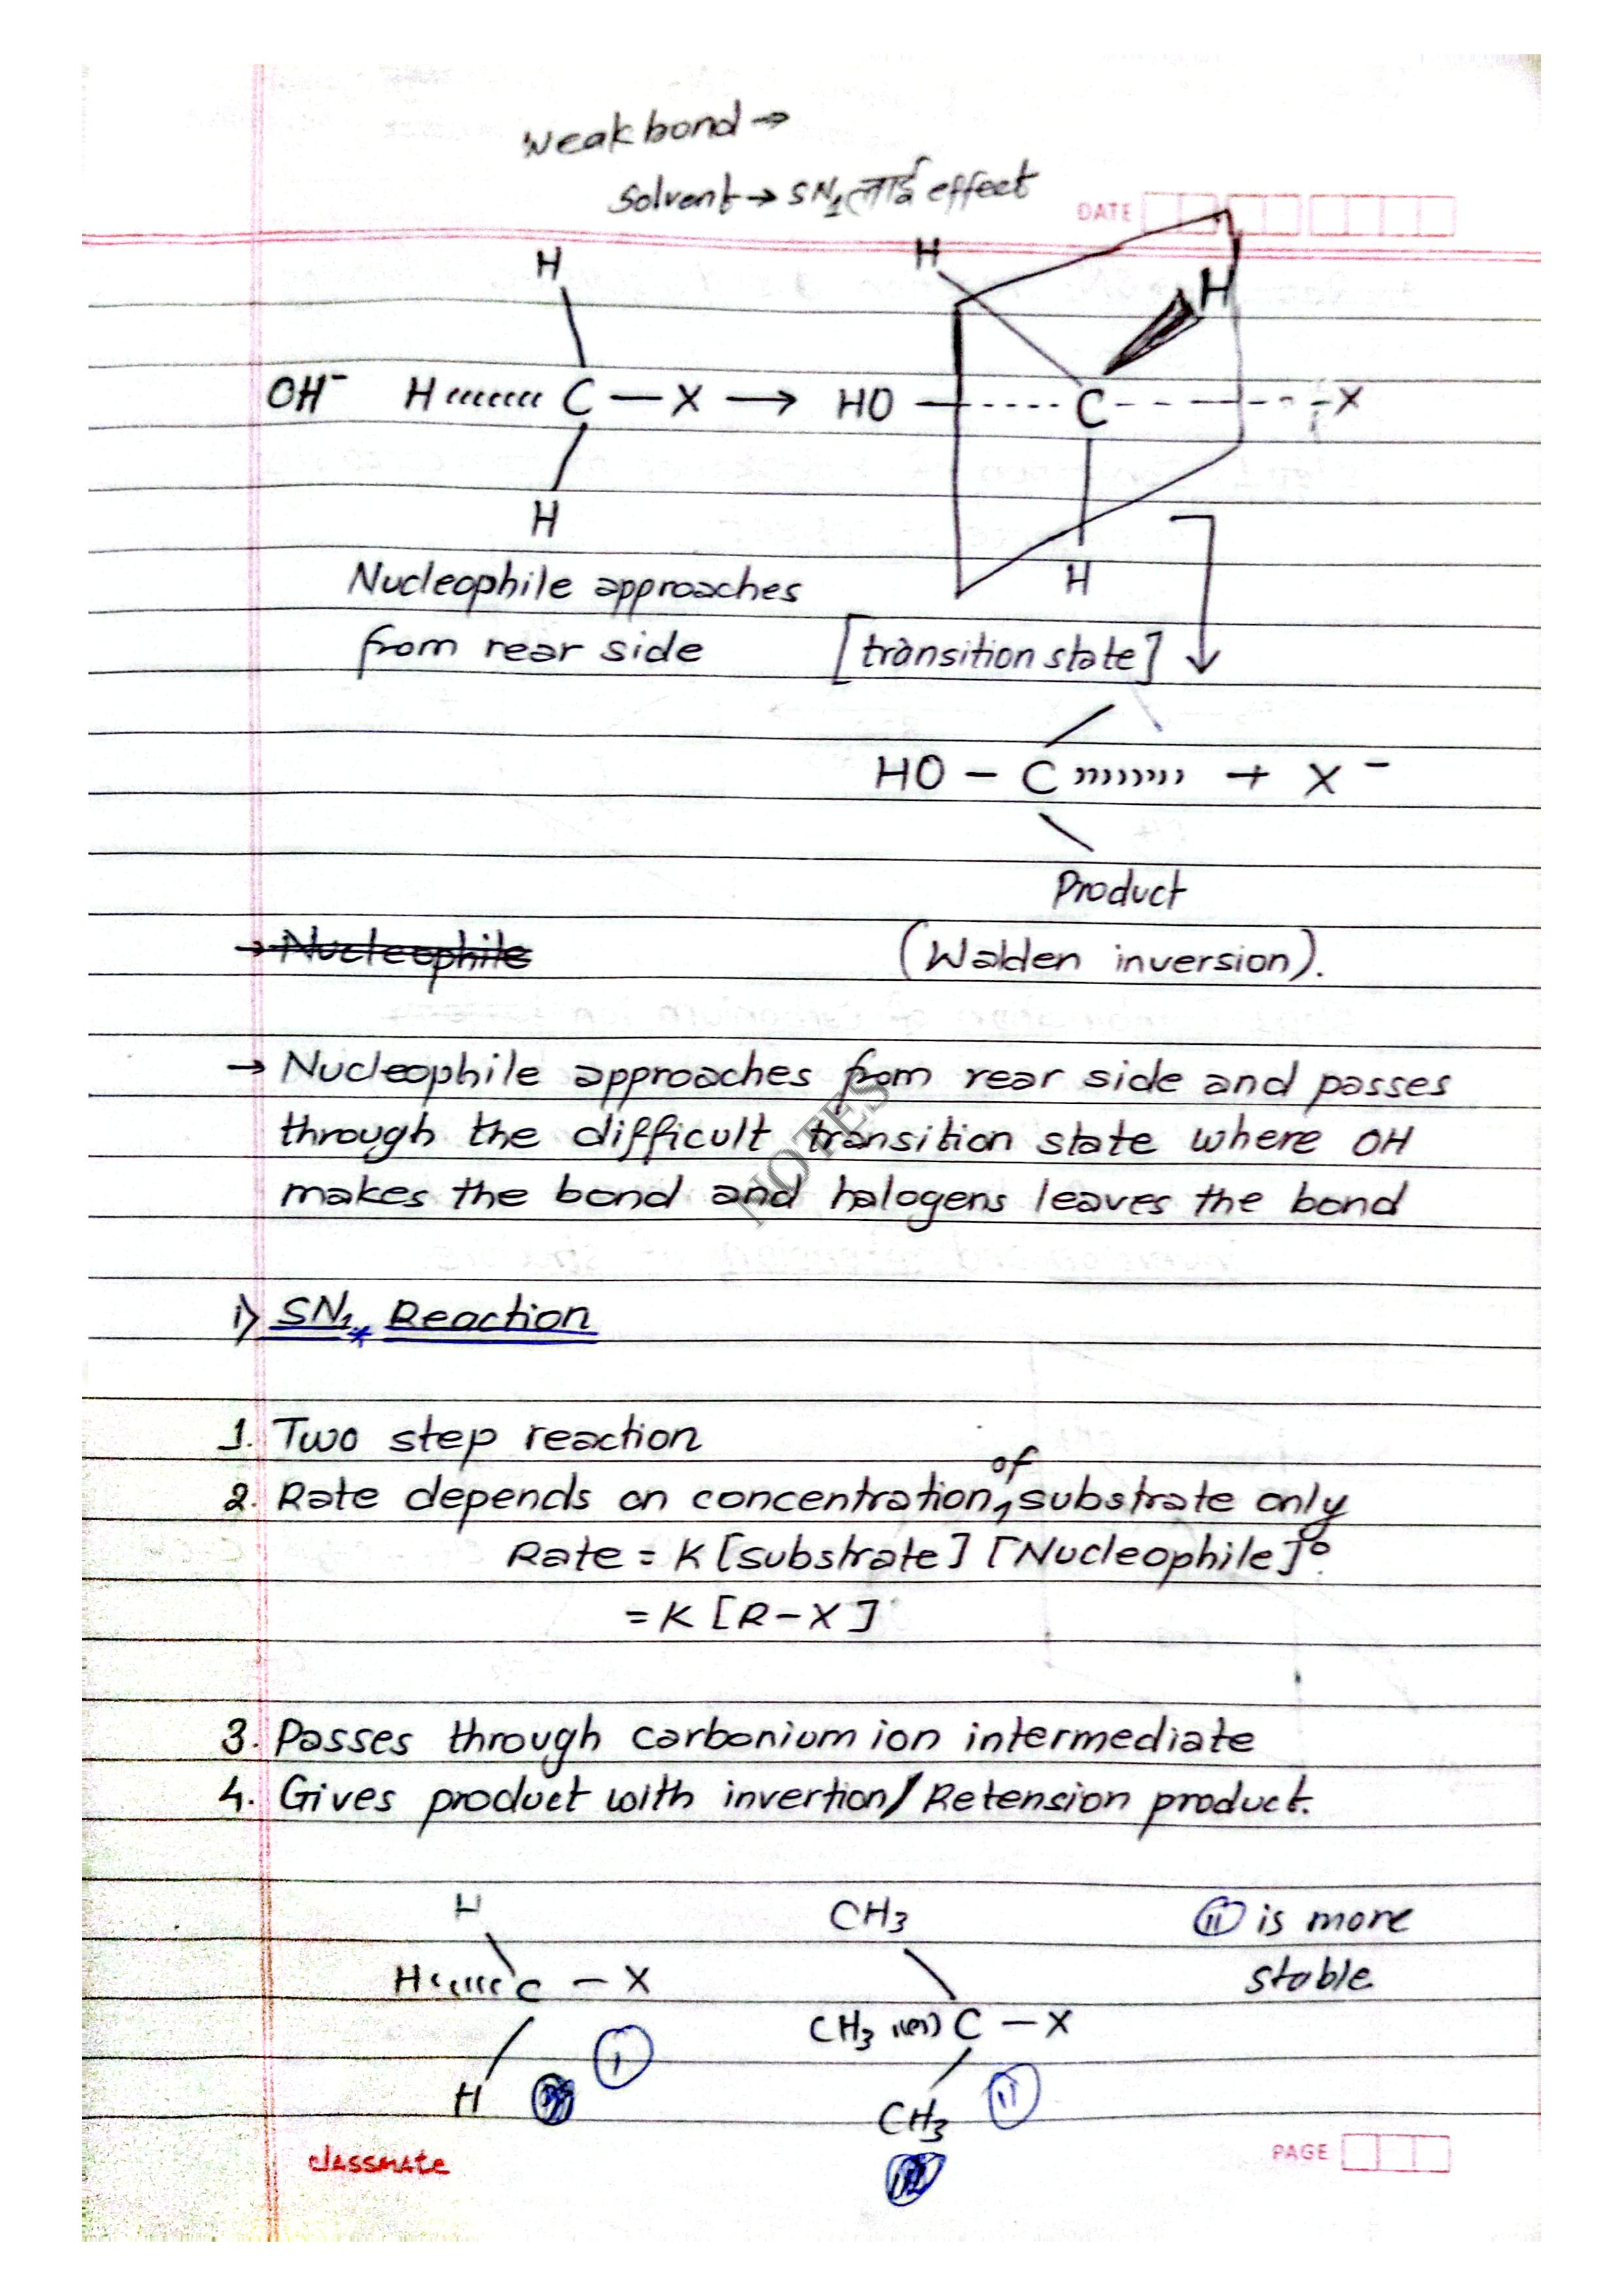 Weak bond →
Solvent → SN1 लाई effect
DATE
H
H
H
OH⁻ H C — X → HO C X
H
H
Nucleophile approaches
from rear side
[transition state]
HO – C + X⁻
Product
→ Nucleophile
(Walden inversion).
→ Nucleophile approaches from rear side and passes
through the difficult transition state where OH
makes the bond and halogens leaves the bond
NOTES
i) SN1* Reaction
1. Two step reaction
2. Rate depends on concentration of substrate only
Rate = K [substrate] [Nucleophile]⁰
= K [R–X]
3. Passes through carbonium ion intermediate
4. Gives product with invertion/Retension product.
H
CH3
(ii) is more
stable.
H C – X
CH3 C – X
(i)
(ii)
H
CH3
classmate
PAGE